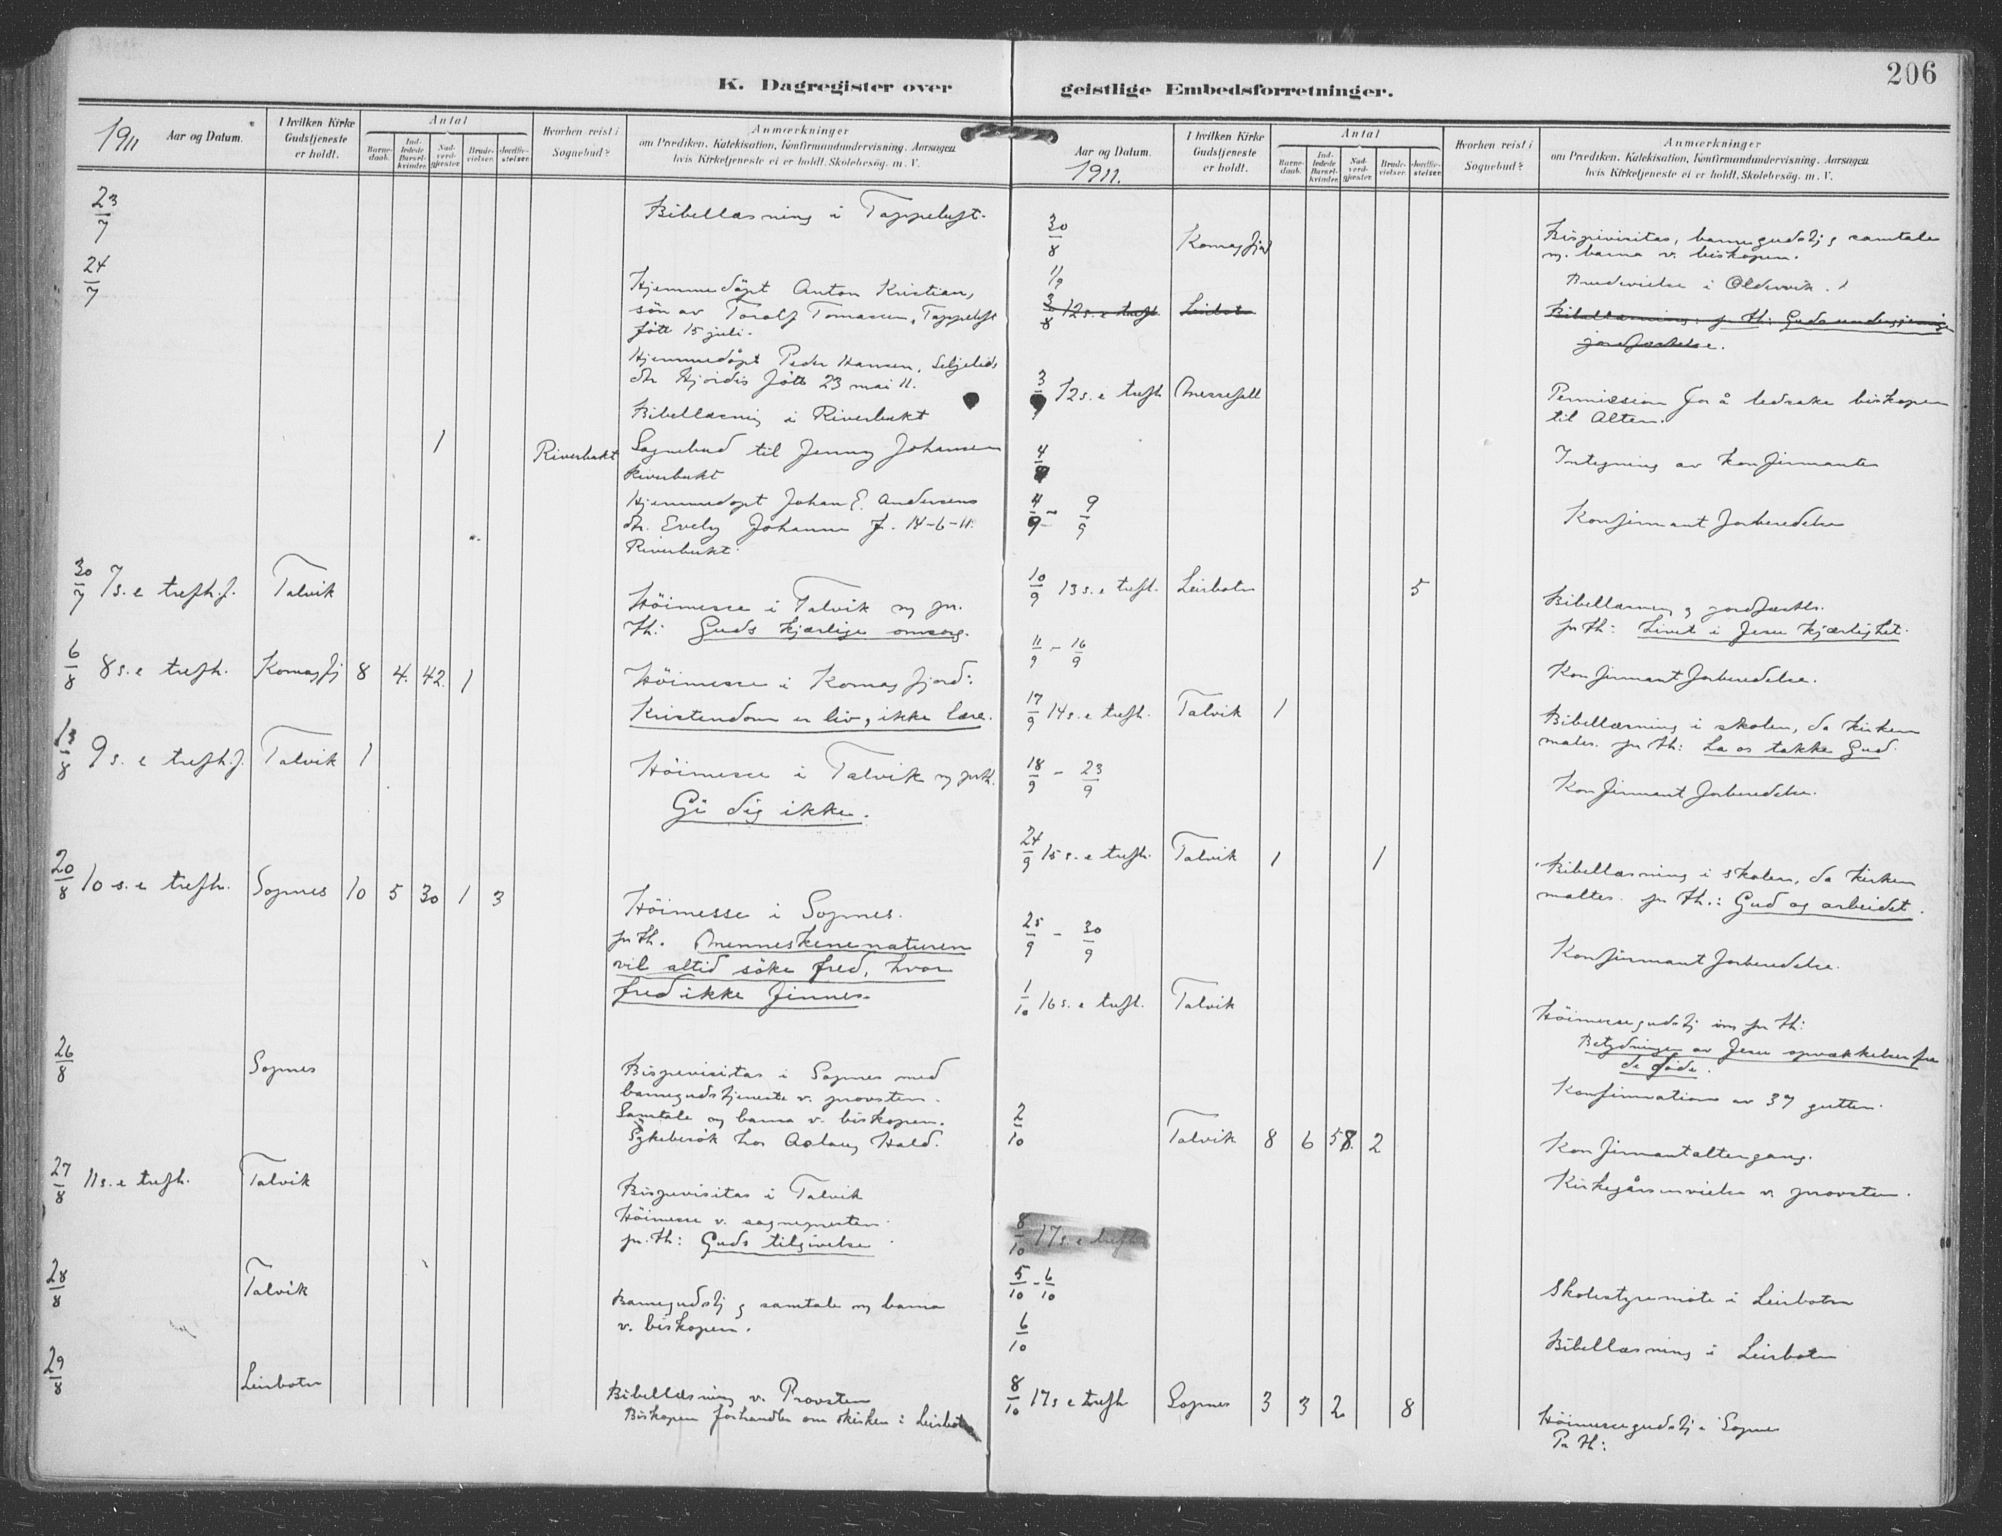 206
K. Dagregister over
geistlige Embedsforretninger.
1911 Aar og Datum.
I hvilken Kirke
Gudstjeneste
er holdt.
Antal
Barne-
daab.
Ind-
ledede
Barsel-
kvinder.
Nad-
verd-
gjester.
Brude-
vielser.
Jordfæ-
stelser.
Hvorhen reist i
Sognebud?
Anmærkninger
om Prædiken, Katekisation, Konfirmandundervisning. Aarsagen
hvis Kirketjeneste ei er holdt. Skolebesøg. m. V.
23/7 Bibellæsning i Tappeluft.
24/7
Hjemmedöpt Anton Kristian,
sön av Toralf Tomassen, Tappeluft
fött 15 juli.
Hjemmedöpt Peder Hansen,
dtr. Hjördis födt 23 mai 11.
Bibellæsning i Riverbukt
1 Riverbukt Sognebud til Jenny Johansen
Riverbukt
Hjemmedöpt Johan E. Andersens
dtr. Evely Johanne f. 14-6-11.
Riverbukt.
30/7 7 s. e trefh.f. Talvik
Höimesse i Talvik m pr.
th: Guds kjærlige omsorg.
6/8 8 s. e trefh. Komagfj 8 4. 42. 1 Höimesse i Komagfjord:
Kristendom er liv, ikke lære.
13/8 9 s. e trefh.f. Talvik 1 Höimesse i Talvik m pr th.
Gi dig ikke.
20/8 10 s. e trefh. Sopnes 10 5 30 1 3 Höimesse i Sopnes.
pr th. Menneskenenaturen
vil altid söke fred, hvor
fred ikke finnes.
26/8 Sopnes Bispevisitas i Sopnes med
barnegudstjeneste v. provsten.
Samtale m barna v. biskopen.
Sykebesök hos Aslaug Hald.
27/8 11 s. e trefh. Talvik Bispevisitas i Talvik
Höimesse v. sognepresten.
pr. th: Guds tilgivelse.
28/8 Talvik Barnegudstj g samtale m barna
v. biskopen.
29/8 Leirbotn Bibellæsning v. Provsten
Biskopen forhandler om kirken i Leirbotn
Aar og Datum.
1911.
I hvilken Kirke
Gudstjeneste
er holdt.
Antal
Barne-
daab.
Ind-
ledede
Barsel-
kvinder.
Nad-
verd-
gjester.
Brude-
vielser.
Jordfæ-
stelser.
Hvorhen reist i
Sognebud?
Anmærkninger
om Prædiken, Katekisation, Konfirmandundervisning. Aarsagen
hvis Kirketjeneste ei er holdt, Skolebesøg. m. V.
30/8 Komagfjord Bispevisitas, barnegudstj g samtale
m. barna v. biskopen.
1/9 Brudevielse i Oldervik. 1
3/8 12 s. e trefh Leirbotn Bibellæsning: pr th: Guds
jordfæstelse.
3/9 12 s. e trefh Messefall Permission for å ledsake biskopen
til Alten.
4/9 Integning av konfirmanter
4/9 - 9/9 Konfirmant forberedelse
10/9 13 s. e trefh. Leirbotn 5 Bibellæsning g jordfæstls.
pr th: Livet i Jesu kjærlighet.
11/9 - 16/9 Konfirmant forberedelse.
17/9 14 s. e trefh. Talvik 1 Bibellæsning i skolen, da kirken
males. pr th: La os takke Gud.
18/9 - 23/9 Konfirmant forberedelse.
24/9 15 s. e trefh. Talvik 1 1 Bibellæsning i skolen, da kirken
maltes. pr th.: Gud og arbeidet.
25/9 - 30/9 Konfirmant forberedelse.
1/10 16 s. e trefh. Talvik Höimessegudstj pr th:
Betydningen av Jesu opvækkelse fra
de döde.
Konfirmation av 37 gutter.
2/10 Talvik 8 6 58. 2 Konfirmantaltergang.
Kirkegårsinvielse v. provsten.
8/10 17 s. e trefh
5/10 - 6/10 Skolestyremöte i Leirbotn
6/10 Bibellæsning i Leirbotn
8/10 17 s e trefh Sopnes 3 3 2 8 Höimessegudstj i Sopnes
Pr th: